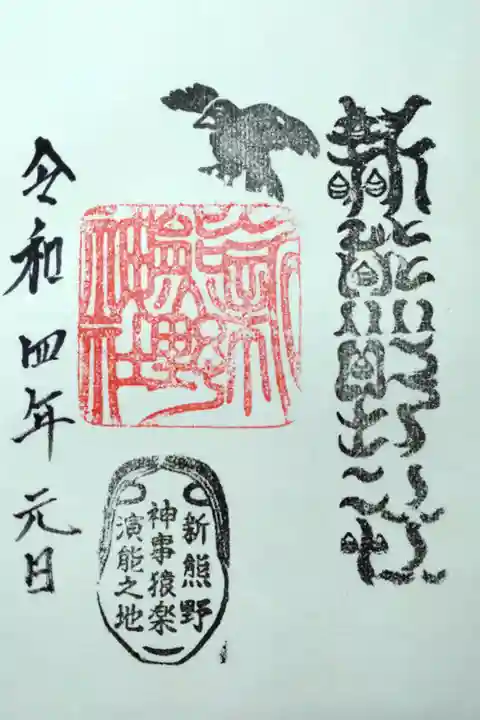 新熊野
新熊野神社
新熊野
神事猿楽
演能之地
令和四年元旦